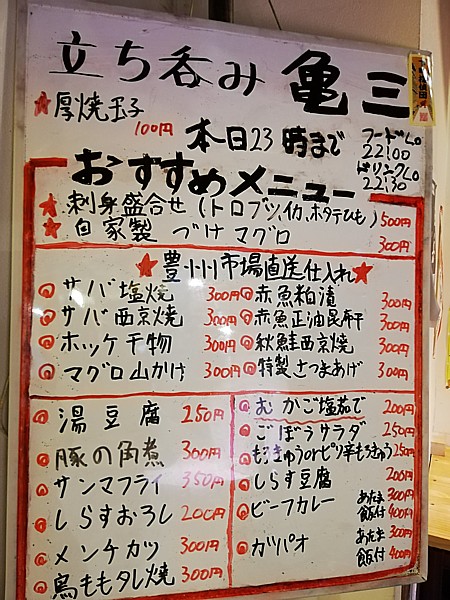 立ち呑み 亀三
★厚焼玉子
100円
本日23時まで
フードLO
22:00
ドリンクLO
22:30
おすすめメニュー
★刺身盛合せ(トロブツ,イカ,ホタテひも) 500円
★自家製 づけマグロ 300円
★豊洲市場直送仕入れ★
サバ塩焼 300円
サバ西京焼 300円
ホッケ干物 300円
マグロ山かけ 300円
赤魚粕漬 300円
赤魚正油昆布干 300円
秋鮭西京焼 300円
特製さつまあげ 300円
湯豆腐 250円
豚の角煮 300円
サンマフライ 350円
しらすおろし 200円
メンチカツ 300円
鳥ももタレ焼 300円
むかご塩茹で 200円
ごぼうサラダ 250円
もろきゅうorピリ辛もろきゅう 250円
しらす豆腐 200円
ビーフカレー あたま 300円
飯付 400円
ガパオ あたま 300円
飯付 400円